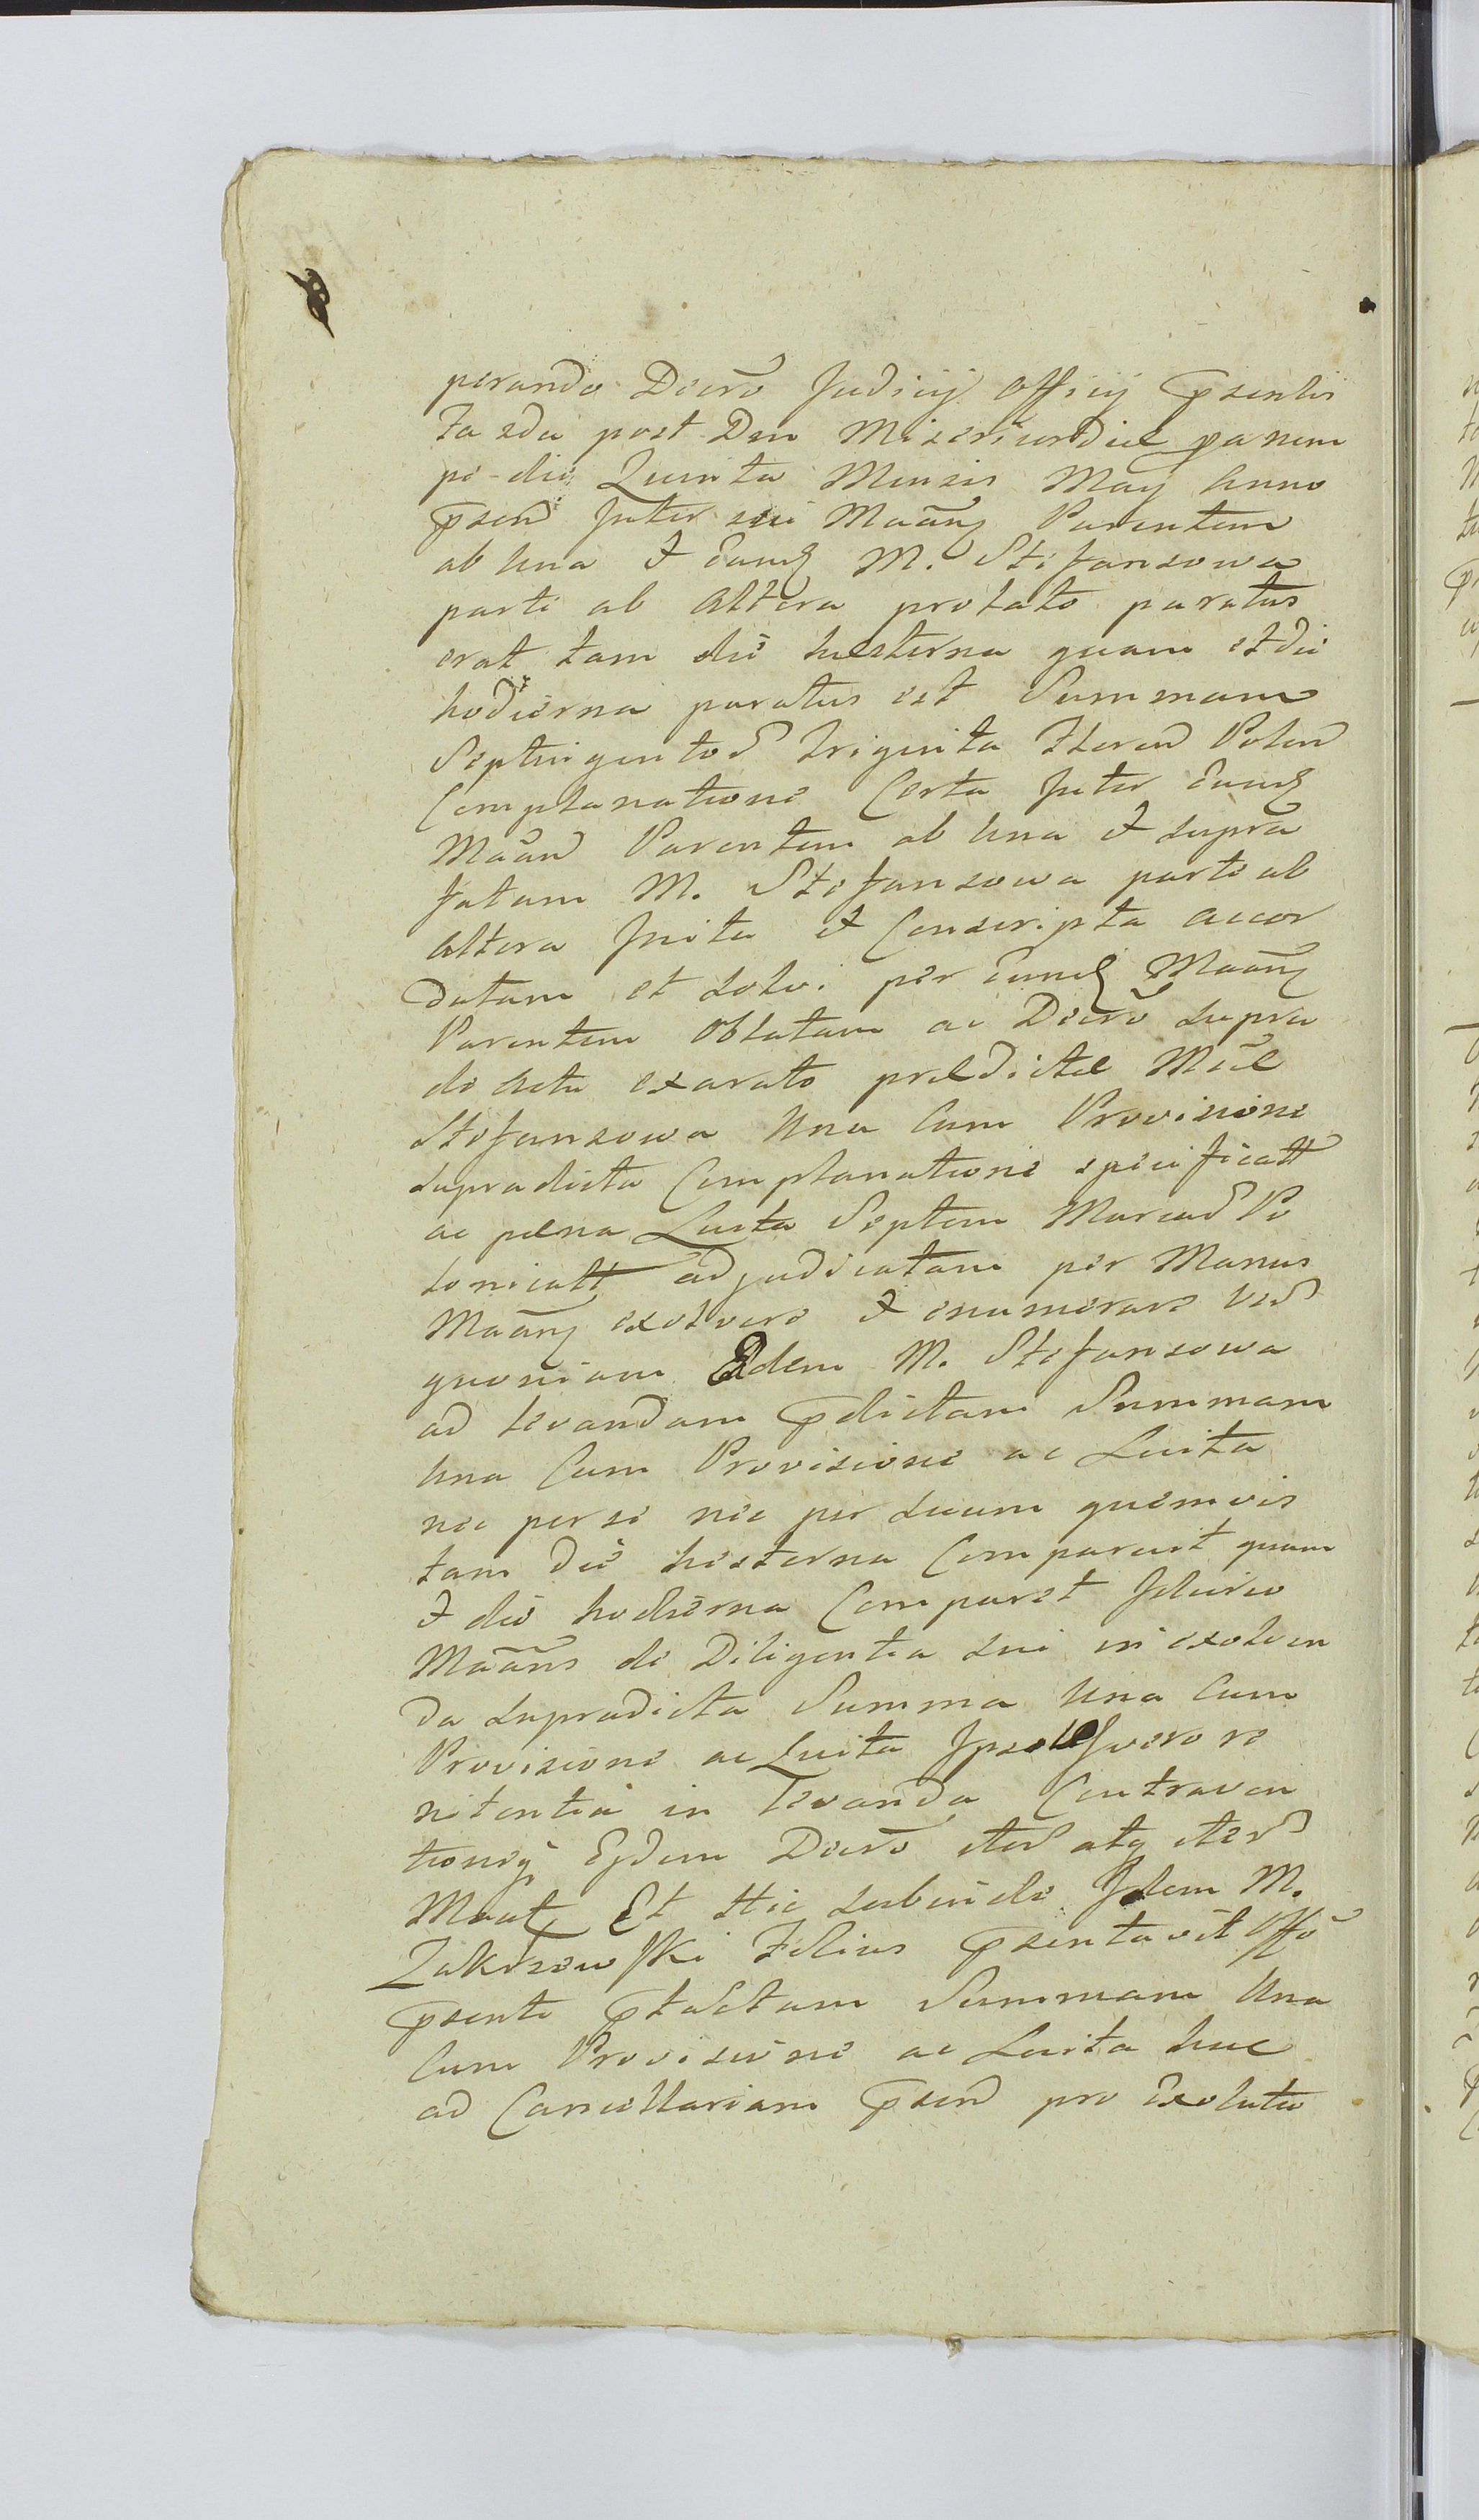 perando Decrō Judicij Officij Psentis
Fa 2da post Dm Misericordiae panem
pe die Quinta Mensis Maij Anno
Psen Inter sui Maanq Parentem
ab Una & Eand M. Stefansowa
parte ab Altera prolato paratus
erat tam die hesterna quam et die
hodierna paratus est Summam
Septuigentos triginta Floren Polon
Complanatione Certa Inter Eand
Maan Parentem ab Una & supra
fatam M. Stefansowa parte ab
Altera Inita et Conscripta accor
datam et solvi per Eund Maanq
Parentem Oblatam ac Decrō supra
de Actu exarato praedictae Mcae
Stefansowa Una Cum Provisione
supradicta Complanatione specificatt
ac paena Luita Septem Marcas Po
lonicatt adjudicatam per Manus
Maanq exolvere & enumerare Ves
quoniam Eadem M. Stefansowa
ad levandam Pdictam Summam
Una Cum Provisione ac Luita
nec per se nec per suum quemvis
tam die hesterna Comparuit quam
& die hodierna Comparet Idcirco
Maans de Diligentia sui in exolven
da supradicta Summa Una Cum
Provisione ac Luita Ipsius vero re
nitentia in levanda Contraven
tioneq Ejdem Decrō iter atq iter
Maat Et Hic subinde Idem M.
Zakrzewski Filius Psentavit Offō
Psenti Pfactam Summam Una
Cum Provisione ac Luita huc
ad Cancellariam Psen pro Exoluta